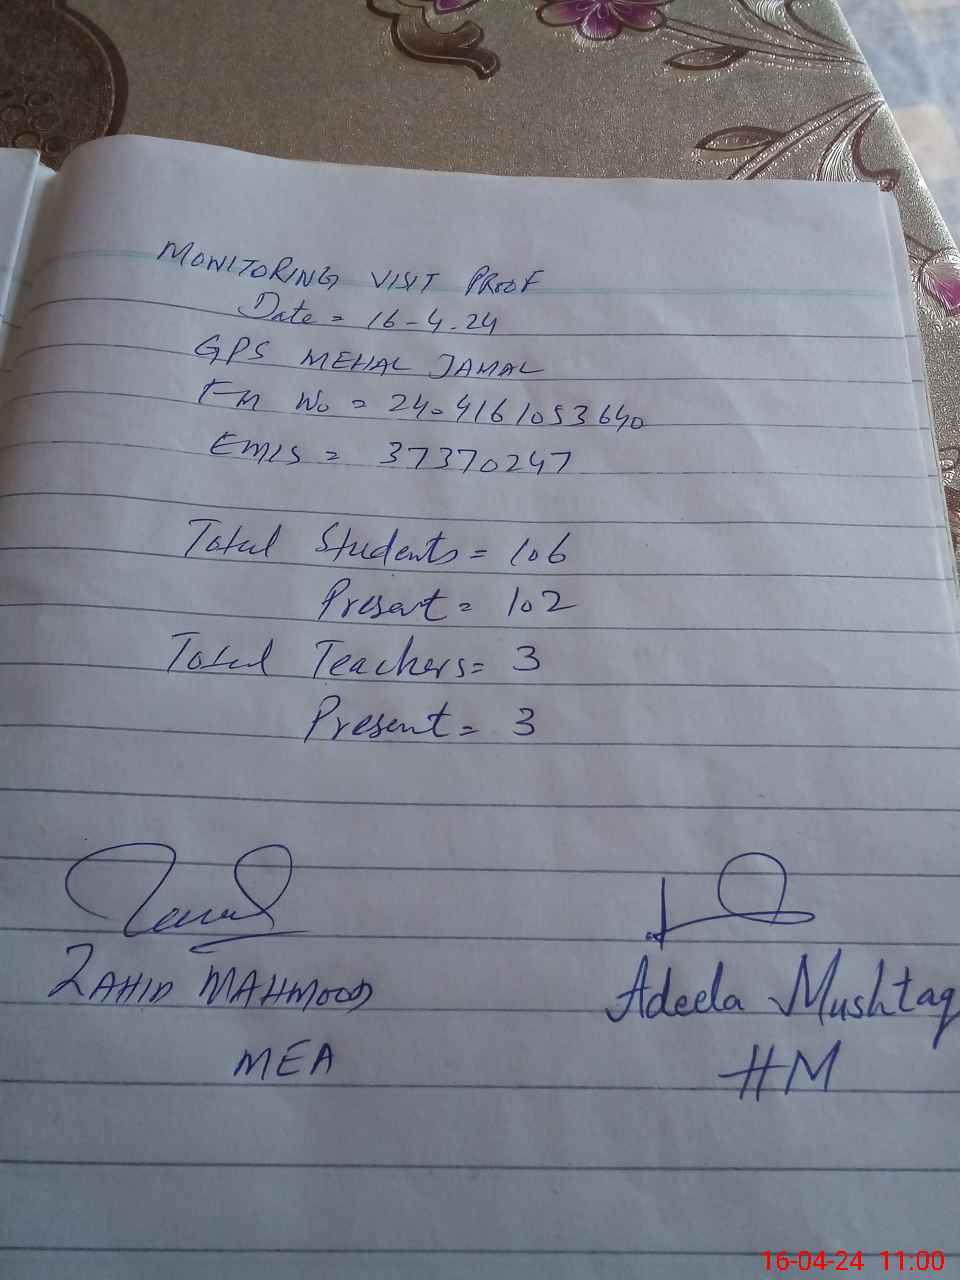 MONITORING VISIT PROOF
Date = 16-4-24
GPS MEHAL JAMAL
Fm No = 24-4161053640
EMIS = 37370247
Total Students = 106
Present = 102
Total Teachers = 3
Present = 3
ZAHID MAHMOOD
MEA
Adeela Mushtaq
HM
16-04-24 11:00